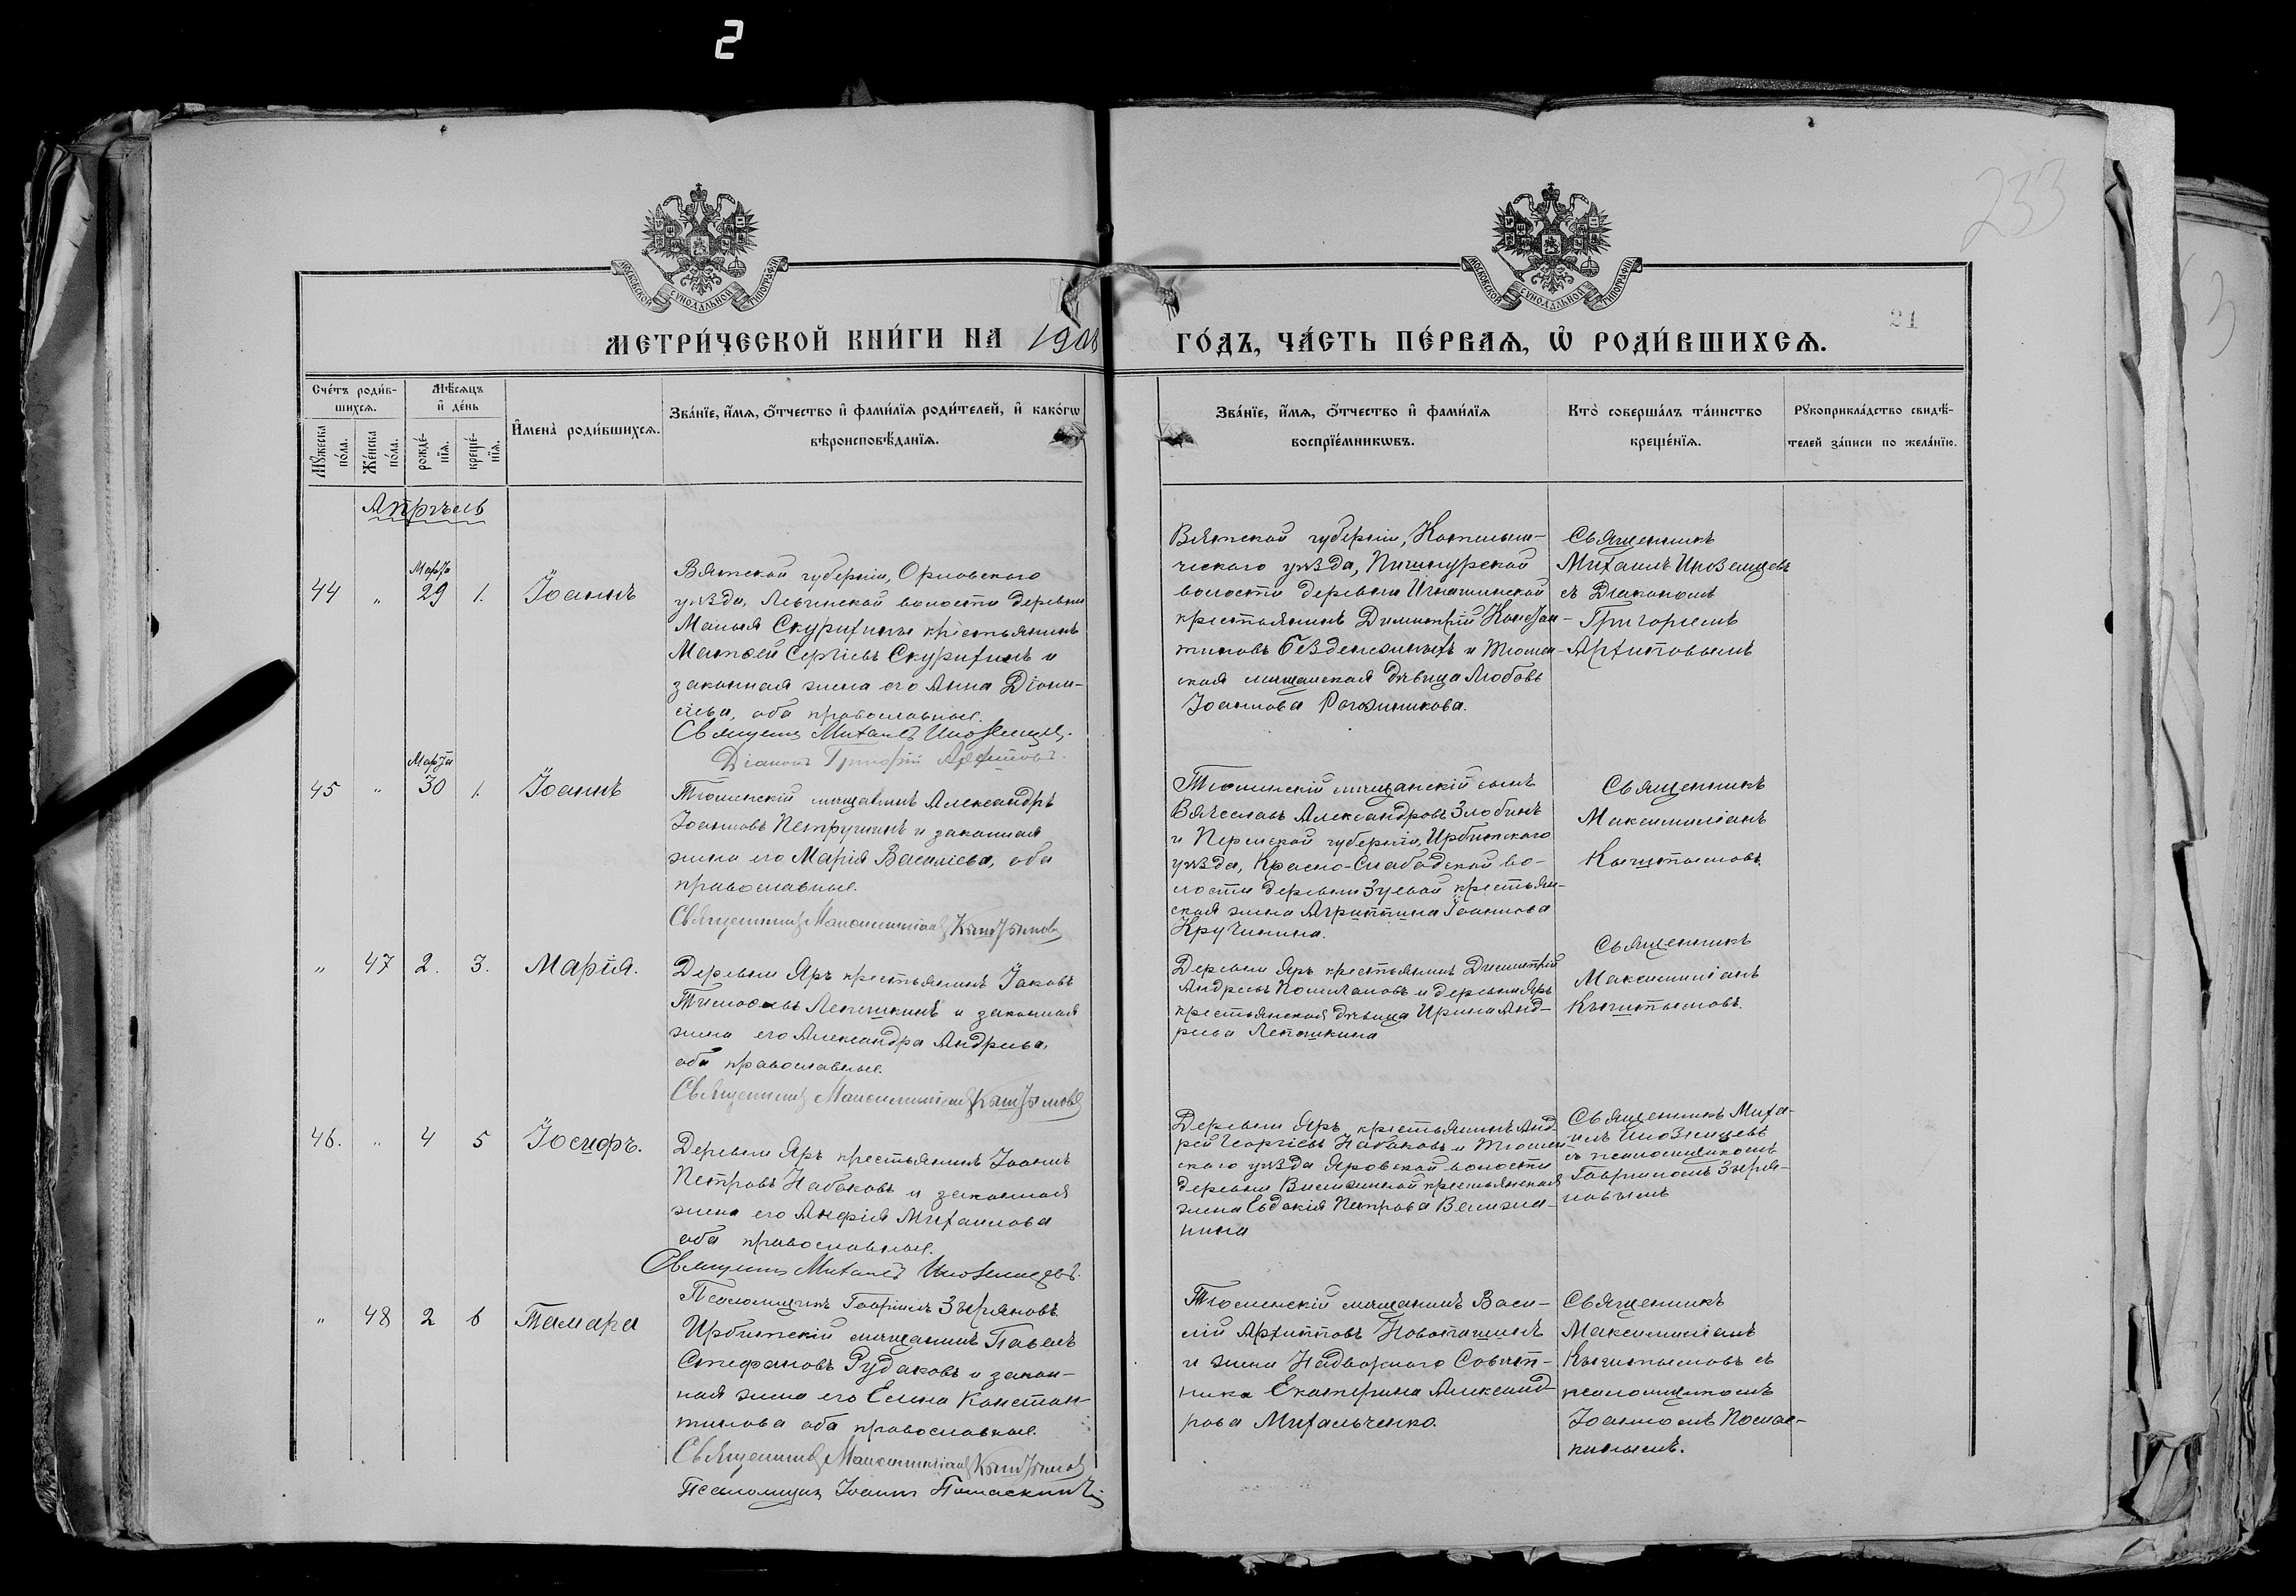 2
233
21
МОСКОВСКОЙ СѴНОДАЛЬНОЙ ТИПОГРАФІИ
МОСКОВСКОЙ СѴНОДАЛЬНОЙ ТИПОГРАФІИ
МЕТРИ́ЧЕСКОЙ КНИ́ГИ НА 1908 ГО́ДЪ, ЧА́СТЬ ПЕ́РВАѦ, Ѽ РОДИ́ВШИХСѦ.
Сче́тъ роди́в-
шихсѧ.
Мꙋ́жеска по́ла.
Же́нска по́ла.
Мѣ́сѧцъ
и҆ де́нь
рожде́-
нїѧ.
креще́-
нїѧ.
И҆мена̀ роди́вшихсѧ.
Зва́нїе, и҆́мѧ, ѻ҆́тчество и҆ фами́лїѧ роди́телей, и҆ како́гѡ
вѣроисповѣ́данїѧ.
Зва́нїе, и҆́мѧ, ѻ҆́тчество и҆ фами́лїѧ
воспрїе́мникѡвъ.
Кто̀ соверша́лъ та́инство
креще́нїѧ.
Рꙋкоприкла́дство свидѣ́-
телей за́писи по жела́нїю.
Апрѣль
44 " Марта 29 1. Іоаннъ
Вятской губерніи, Орловскаго
уѣзда, волости деревни
Малыя Скурихины крестьянинъ
Матѳей Сергіевъ Скурихинъ и
законная жена его Анна Діони-
сіева, оба православные.
Священникъ Михаилъ Иноземцевъ.
Діаконъ Григорій Архиповъ.
Вятской губерніи, Котельни-
ческаго уѣзда, Пишнурской
волости деревни Игнашинской
крестьянинъ Димитрій Констан-
тиновъ и Тюмен-
ская мѣщанская дѣвица Любовь
Іоаннова Рагозинникова.
Священникъ
Михаилъ Иноземцевъ
съ Діакономъ
Григоріемъ
Архиповымъ
45 " Марта 30 1. Іоаннъ
Тюменскій мѣщанинъ Александръ
Іоанновъ Петрушинъ и законная
жена его Марія Василіева, оба
православные.
Священникъ Максимиліанъ Кыштымовъ
Тюменскій мѣщанскій сынъ
Вячеславъ Александровъ Злобинъ
и Пермской губерніи, Ирбитскаго
уѣзда, Красно-Слабодской во-
лости деревни Зуевой крестьян-
ская жена Агриппина Іоаннова
Кручинина.
Священникъ
Максимиліанъ
Кыштымовъ.
" 47 2. 3. Марія.
Деревни Яръ крестьянинъ Іаковъ
Тимоѳеевъ Лепошкинъ и законная
жена его Александра Андреева,
оба православные.
Священникъ Максимиліанъ Кыштымовъ
Деревни Яръ крестьянинъ Димитрій
Андреевъ и деревни Яръ
крестьянская дѣвица Ирина Анд-
реева Лепошкина
Священникъ
Максимиліанъ
Кыштымовъ.
46. " 4 5 Іосифъ.
Деревни Яръ крестьянинъ Іоаннъ
Петровъ Набоковъ и законная
жена его Анфія Михаилова
оба православные.
Священникъ Михаилъ Иноземцевъ.
Псаломщикъ Гавріилъ Зыряновъ.
Деревни Яръ крестьянинъ Анд-
рей Георгіевъ Набоковъ и Тюмен-
скаго уѣзда Яровской волости
деревни крестьянская
жена Евдокія Петрова Велижа-
нина
Священникъ Миха-
илъ Иноземцевъ
съ псаломщикомъ
Гавріиломъ Зыря-
новымъ
" 48 2 6 Тамара
Ирбитскій мѣщанинъ Павелъ
Стефановъ Рудаковъ и закон-
ная жена его Елена Констан-
тинова оба православные.
Священникъ Максимиліанъ Кыштымовъ
Псаломщикъ Іоаннъ Помаскинъ
Тюменскій мѣщанинъ Васи-
лій Архипповъ Новопашинъ
и жена Надворнаго Совѣт-
ника Екатерина Александ-
рова Михальченко.
Священникъ
Максимиліанъ
Кыштымовъ съ
псаломщикомъ
Іоанномъ Помас-
кинымъ.